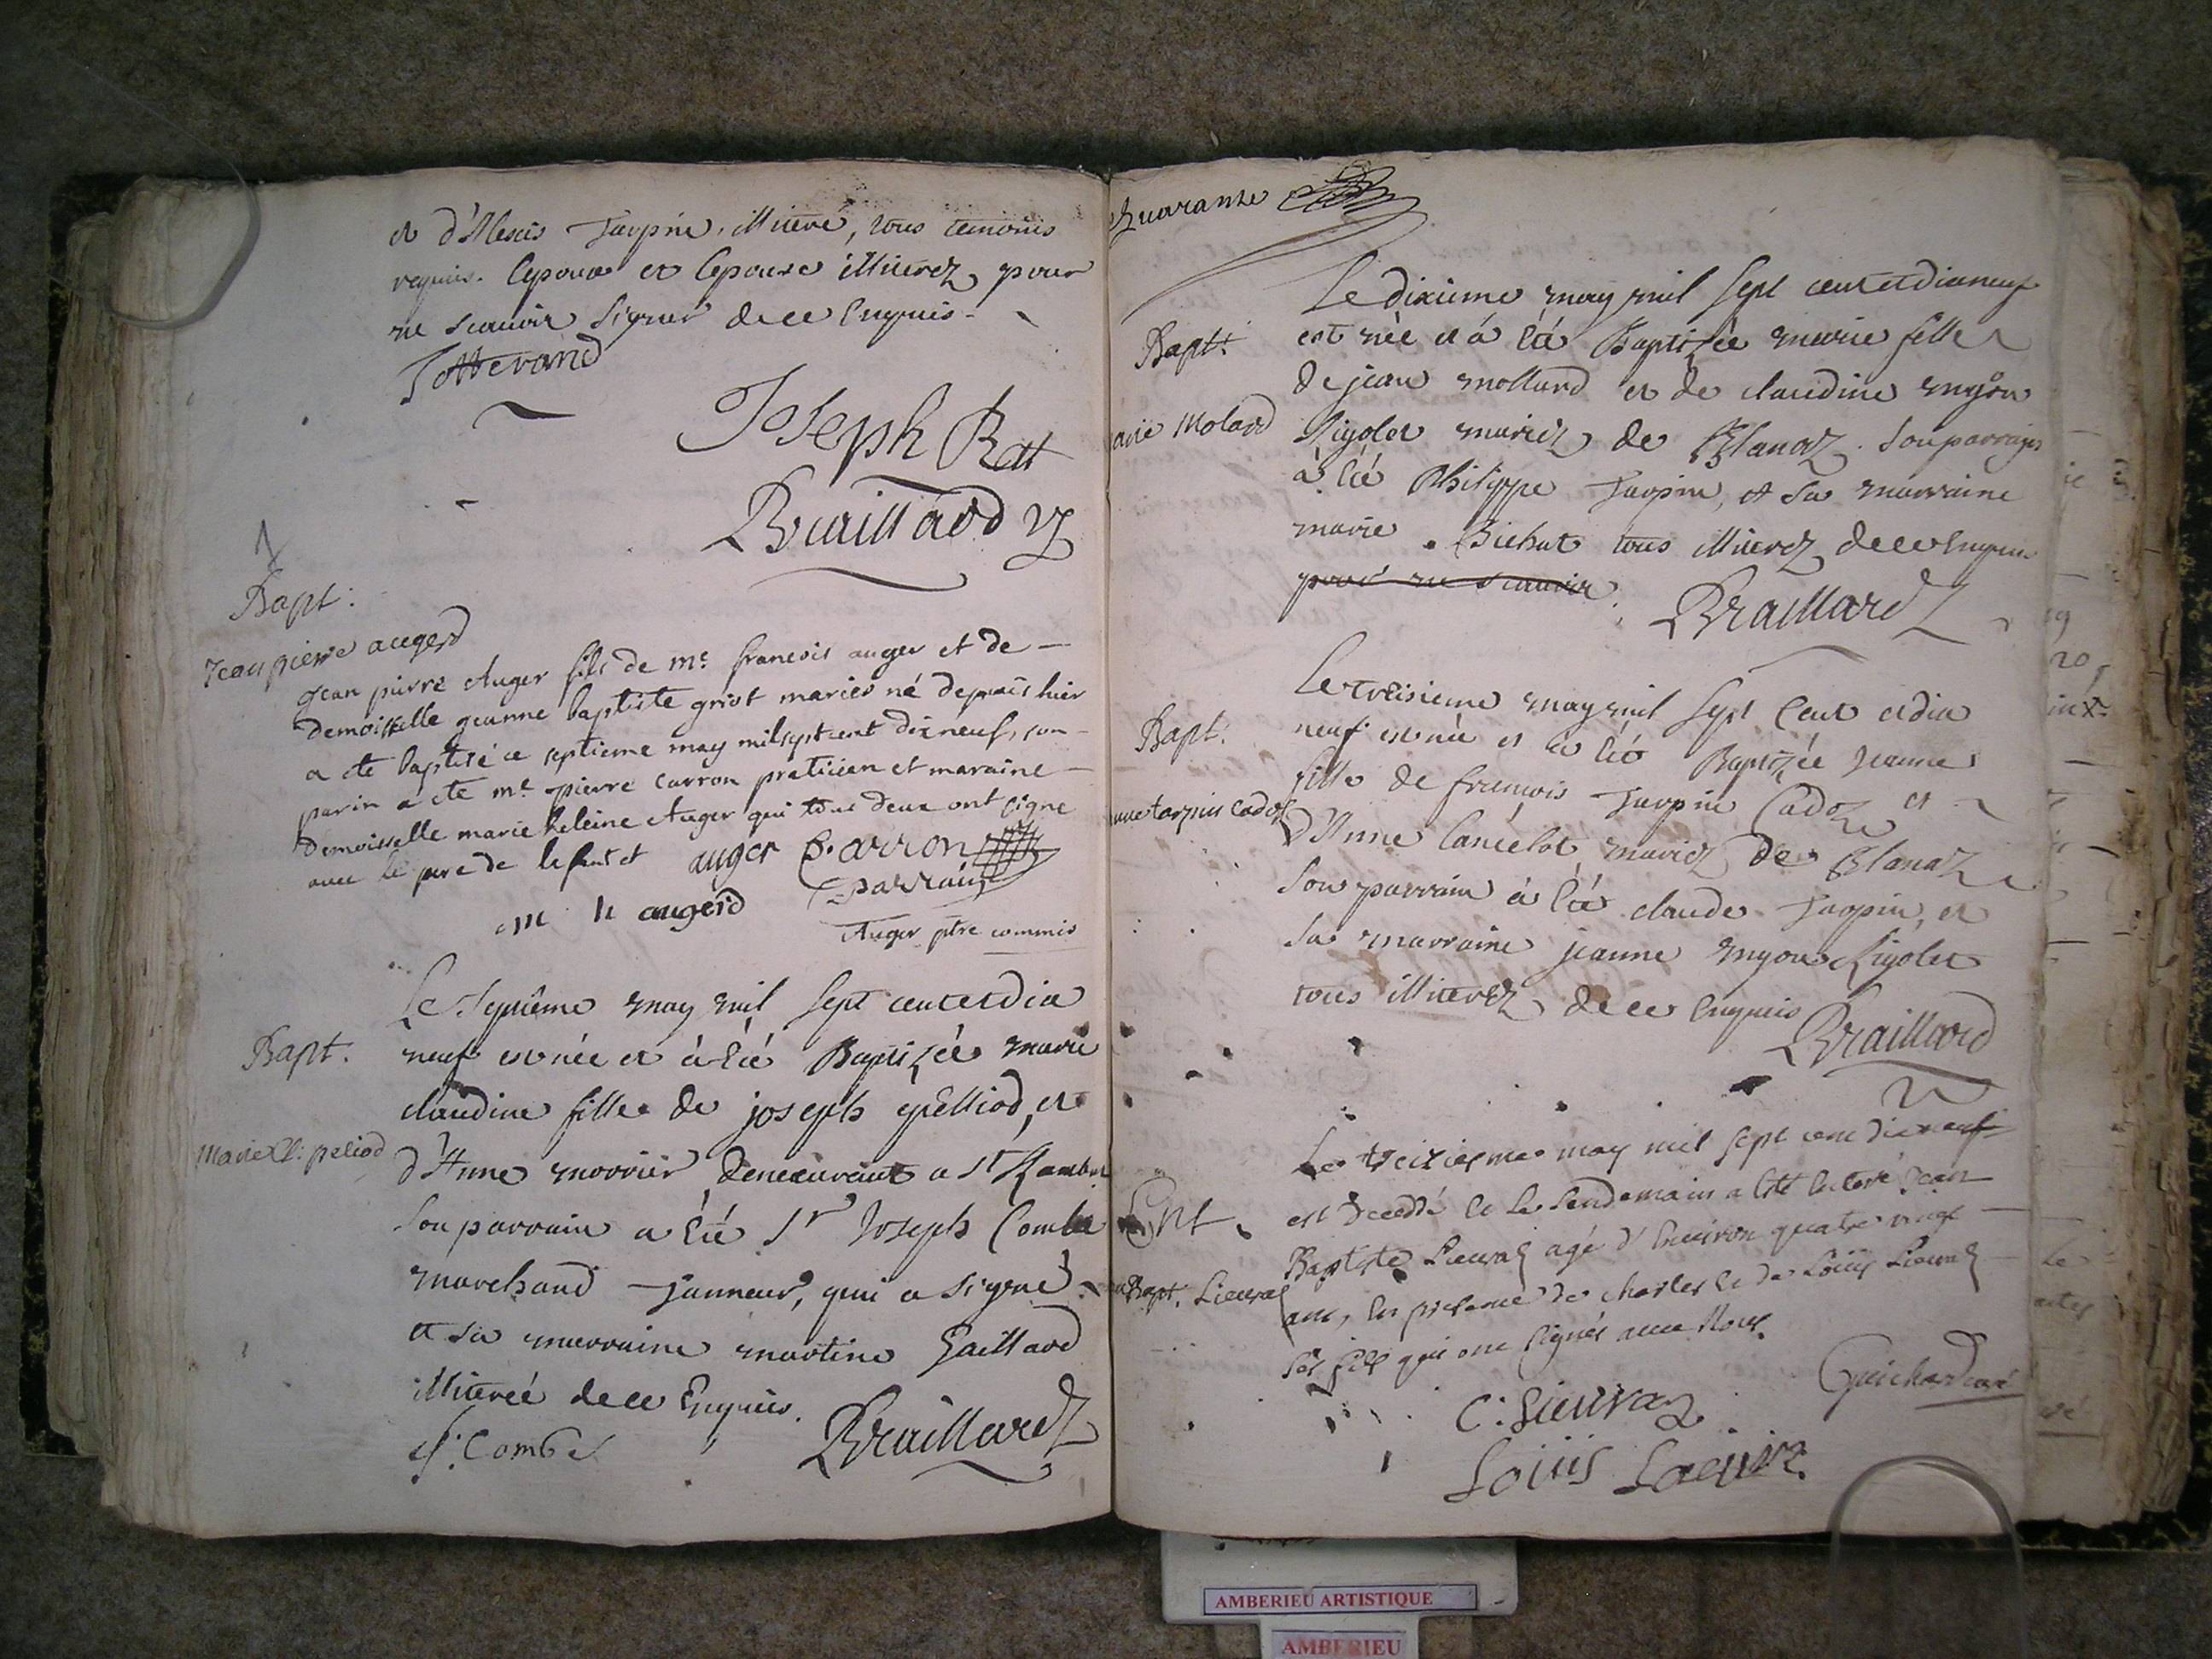 et d'Alexis Tarpin, illiteré, tous temoins
requis. l'epoux et l'epouse illiterez pour
ne scauoir signer de ce enquis.
Jotterand
Joseph Rat
Braillard
Bapt:
Jean pierre augerd
Jean pierre Auger fils de me francois auger et de
Demoisselle jeanne baptiste griot mariés né depuis hier
a ete baptisé ce septieme may mil sept cent dix neuf, son
parin a ete me pierre carron praticien et maraine
Demoisselle marie heleine Auger qui tous deux ont signe
auec le pere de lefant et auger C. arron
parrain
m h augerd
Auger ptre commis
Le septiême may mil sept cent et dix
Bapt. neuf est née et à été Baptizée marie
claudine fille de joseph pelliod, et
marie Cl: peliod
d'Anne morrier demeurant a St Rambert
son parrain a été Sr Joseph Combe
marchand Tanneur, qui a signé
et sa marraine martine Gaillard
illiterée de ce Enquis.
J: Combe Braillard
Quarante
Le dixieme may mil sept cent et dix neuf
Bapt: est née et à été Baptizée marie fille
de jean mollard et de claudine myon
arie Molard Rigolet mariez de Blanaz. son parrain
à été Philippe Tarpin, et sa marraine
marie Bichat tous illiterez de ce enquis
pour ne scauoir.
Braillard
Le treisieme may mil sept cent et dix
Bapt. neuf est née et a été Baptizée jeanne
fille de francois Tarpin Cadoz et
nne tarpin Cadoz d'Anne Lancelot mariez de Blanaz
son parrain à été claude Tarpin, et
sa marraine jeanne myon Rigolet
tous illiterez de ce enquis
Braillard
Le treiziesme may mil sept cent dix neuf
Ent. est decedé et le lendemain a esté enteré Jean
Baptiste Lieuraz agé d'enuiron quatre vingt
Bapt. Lieuraz ans, en presence de charles et de Loüis Lieuraz
ses fils qui ont signés auec Nous.
Guichard curé
C: Lieuraz
Loüis
AMBERIEU ARTISTIQUE
AMBERIEU